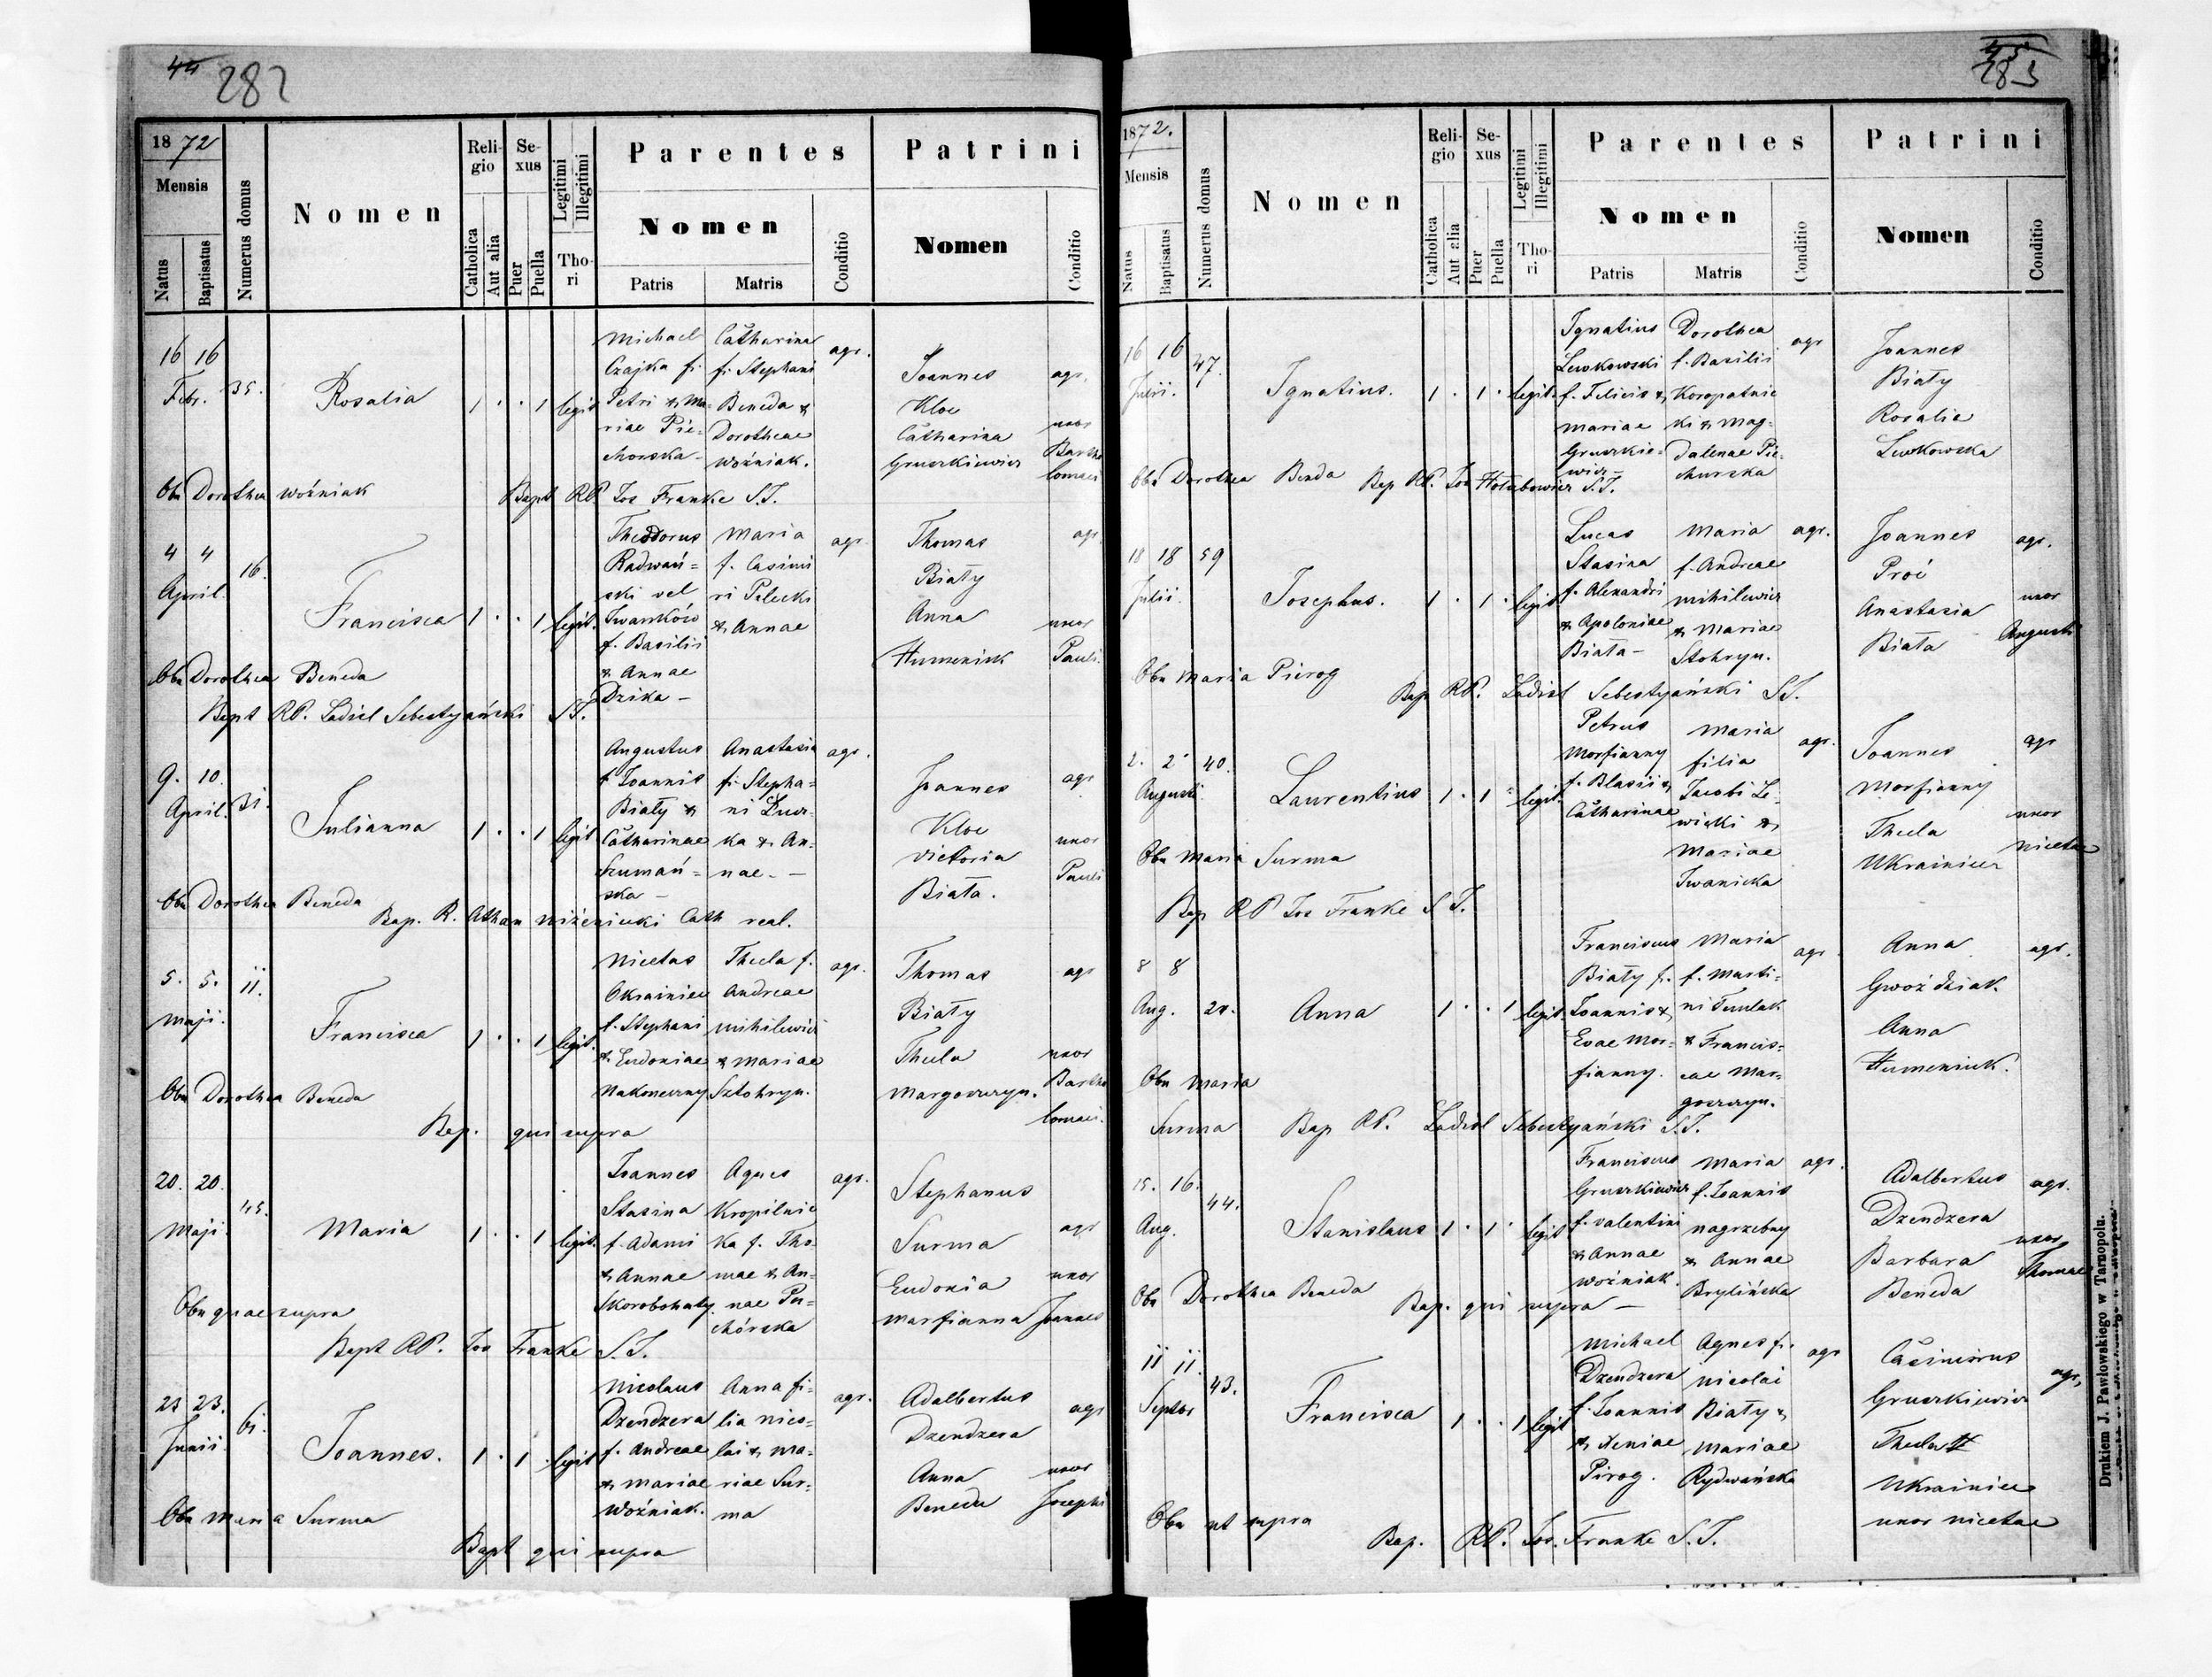 44 282
18 72
Mensis
Natus
Baptisatus
Numerus domus
Nomen
Religio
Catholica
Aut alia
Sexus
Puer
Puella
Legitimi
Illegitimi
Thori
Parentes
Nomen
Patris
Matris
Conditio
Patrini
Nomen
Conditio
16 16 Febr. 35. Rosalia 1 · · 1 legit
Michael
Czajka f.
Petri & Ma-
riae Pie-
chorska -
Catharina
f. Stephani
Beneda &
Dorotheae
Woźniak.
agr.
Joannes
Kloc
Catharina
Gruszkiewicz
agr.
uxor
Bartho
lomaei
Obs Dorothea Woźniak Bapt RP. Jos Franke S.J.
4 4 April. 16. Francisca 1 · · 1 legit.
Theodorus
Radwań=
ski vel
Iwanków
f. Basilii
& Annae
Dzika -
Maria
f. Casimi
ri Pelecki
& Annae
agr
Thomas
Biały
Anna
Humeniuk
agr.
uxor
Pauli.
Obs Dorothea Beneda
Bapt RP. Ladisl Sebestyański S.J.
9. 10. April. 31. Julianna 1 · · 1 legit
Augustus
f. Joannis
Biały &
Catharinae
Szumań=
ska -
Anastasia
f. Stepha=
ka & An-
nae. -
agr.
Joannes
Kloc
Victoria
Biała.
agr
uxor
Pauli
Obs Dorothea Beneda
Bap. R. Athan Cath real.
5. 5. Maji. 11. Francisca 1 · · 1 legit.
Nicetas
Okrainiec
f. Stephani
& Eudoxiae
Nakoneczny
Thecla f.
Andreae
Mihilewicz
& Mariae
Sztohryn.
agr.
Thomas
Biały
Thecla
Margoszczyn.
agr
uxor
Bartho
lomaei.
Obs Dorothea Beneda
Bap. qui supra
20. 20. Maji. 45. Maria 1 · · 1 legit.
Joannes
Stasina
f. Adami
& Annae
Skorobohaty
Agnes
Kropilnic
ka f. Tho-
mae & An-
nae Pie=
chórska
agr.
Stephanus
Surma
Eudoxia
Marfianna
agr
uxor
Joannes
Obs quae supra
Bapt RP. Jos Franke S.J.
23 23. Junii. 61. Joannes. 1 · 1 · legit
Nicolaus
Dzendzera
f. Andreae
& Mariae
Woźniak.
Anna fi-
lia Nico-
lai & Ma-
riae Sur-
ma
agr.
Adalbertus
Dzendzera
Anna
Beneda
agr
uxor
Josephi
Obs Maria Surma
Bapt qui supra
45 283
1872.
Mensis
Natus
Baptisatus
Numerus domus
Nomen
Religio
Catholica
Aut alia
Sexus
Puer
Puella
Legitimi
Illegitimi
Thori
Parentes
Nomen
Patris
Matris
Conditio
Patrini
Nomen
Conditio
16 16 Julii. 47. Ignatius. 1 · 1 · legit.
Ignatius
Lewkowski
f. Felicis &
Mariae
Gruszkie-
wicz -
Dorothea
f. Basilii
Koropatnic
ki & Mag-
dalenae Pie-
churska
agr
Joannes
Biały
Rosalia
Lewkowska
Obs Dorothea Benda Bap RP. Jos Hołubowicz S.J.
18 18 Julii. 59 Josephus. 1 · 1 · legit
Lucas
Stasina
f. Alexandri
& Apoloniae
Biała -
Maria
f. Andreae
Mihilewicz
& Mariae
Stohryn.
agr.
Joannes
Proć
Anastasia
Biała
agr.
uxor
Augusti
Obs Maria Pierog
Bap RP. Ladisl Sebestyański S.J.
2. 2. Augusti. 40. Laurentius 1 · 1 · legit.
Petrus
Morfianny
f. Blasii &
Catharinae
Maria
filia
Jacobi Le-
wicki &
Mariae
Iwanicka
agr.
Joannes
Morfianny
Thecla
Ukrainiec
agr
uxor
Nicetae
Obs Maria Surma
Bap RP Jos Franke S.J.
8 8 Aug. 24. Anna 1 · · 1 legit.
Franciscus
Biały f.
Joannis &
Evae Mor-
fianny.
Maria
f. Marti-
& Francis=
cae Mar-
goszczyn.
agr.
Anna
Gwoździak.
Anna
Humeniuk.
agr.
Obs Maria
Surma Bap RP. Ladisl Sebestyański S.J.
15. 16. Aug. 44. Stanislaus 1 · 1 · legit
Franciscus
Gruszkiewicz
f. Valentini
& Annae
Woźniak.
Maria
f. Joannis
Nagrzebny
& Annae
Brylińska
agr.
Adalbertus
Dzendzera
Barbara
Beneda
agr.
uxor
Thomae
Obs Dorothea Beneda Bap. qui supra -
11 11. Septbr 43. Francisca 1 · · 1 legit
Michael
Dzendzera
f. Joannis
& Xeniae
Pirog.
Agnes f.
Nicolai
Biały &
Mariae
Rydwańska
agr
Casimirus
Gruszkiewicz
Thecla
Ukrainiec
uxor Nicetae
agr,
Obs ut supra
Bap. RP. Jos. Franke S.J.
Drukiem J. Pawłowskiego w Tarnopolu.